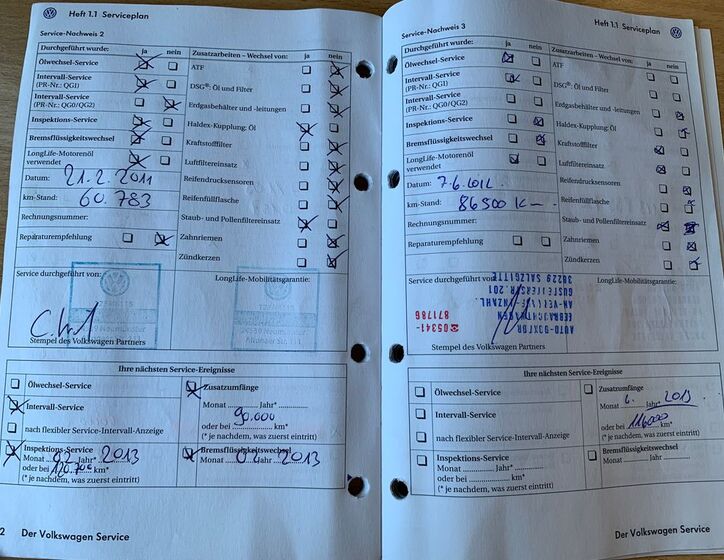 Heft 1.1 Serviceplan
Service-Nachweis 2
Durchgeführt wurde: ja nein
Ölwechsel-Service
Intervall-Service
(PR-Nr.: QG1)
Intervall-Service
(PR-Nr.: QG0/QG2)
Inspektions-Service
Bremsflüssigkeitswechsel
LongLife-Motorenöl
verwendet
Datum: 21.2.2011
km-Stand: 60.783
Rechnungsnummer:
Reparaturempfehlung
Zusatzarbeiten – Wechsel von: ja nein
ATF
DSG®: Öl und Filter
Erdgasbehälter und -leitungen
Haldex-Kupplung: Öl
Kraftstofffilter
Luftfiltereinsatz
Reifendrucksensoren
Reifenfüllflasche
Staub- und Pollenfiltereinsatz
Zahnriemen
Zündkerzen
Service durchgeführt von:
LongLife-Mobilitätsgarantie:
Stempel des Volkswagen Partners
Ihre nächsten Service-Ereignisse
Ölwechsel-Service
Intervall-Service
nach flexibler Service-Intervall-Anzeige
Zusatzumfänge
Monat Jahr*
90.000
oder bei km*
(* je nachdem, was zuerst eintritt)
Inspektions-Service
Monat 02 Jahr* 2013
oder bei km*
(* je nachdem, was zuerst eintritt)
Bremsflüssigkeitswechsel
Monat Jahr 2013
2 Der Volkswagen Service
Heft 1.1 Serviceplan
Service-Nachweis 3
Durchgeführt wurde: ja nein
Ölwechsel-Service
Intervall-Service
(PR-Nr.: QG1)
Intervall-Service
(PR-Nr.: QG0/QG2)
Inspektions-Service
Bremsflüssigkeitswechsel
LongLife-Motorenöl
verwendet
Datum: 7.6.2012
km-Stand: 86500 K
Rechnungsnummer:
Reparaturempfehlung
Zusatzarbeiten – Wechsel von: ja nein
ATF
DSG®: Öl und Filter
Erdgasbehälter und -leitungen
Haldex-Kupplung: Öl
Kraftstofffilter
Luftfiltereinsatz
Reifendrucksensoren
Reifenfüllflasche
Staub- und Pollenfiltereinsatz
Zahnriemen
Zündkerzen
Service durchgeführt von:
LongLife-Mobilitätsgarantie:
AUTO-DOKTOR
38229 SALZGITTER
05341-
871786
Stempel des Volkswagen Partners
Ihre nächsten Service-Ereignisse
Ölwechsel-Service
Intervall-Service
nach flexibler Service-Intervall-Anzeige
Zusatzumfänge
Monat 6. Jahr* 2013
oder bei 116000 km*
(* je nachdem, was zuerst eintritt)
Inspektions-Service
Monat Jahr*
oder bei km*
(* je nachdem, was zuerst eintritt)
Bremsflüssigkeitswechsel
Monat Jahr
Der Volkswagen Service